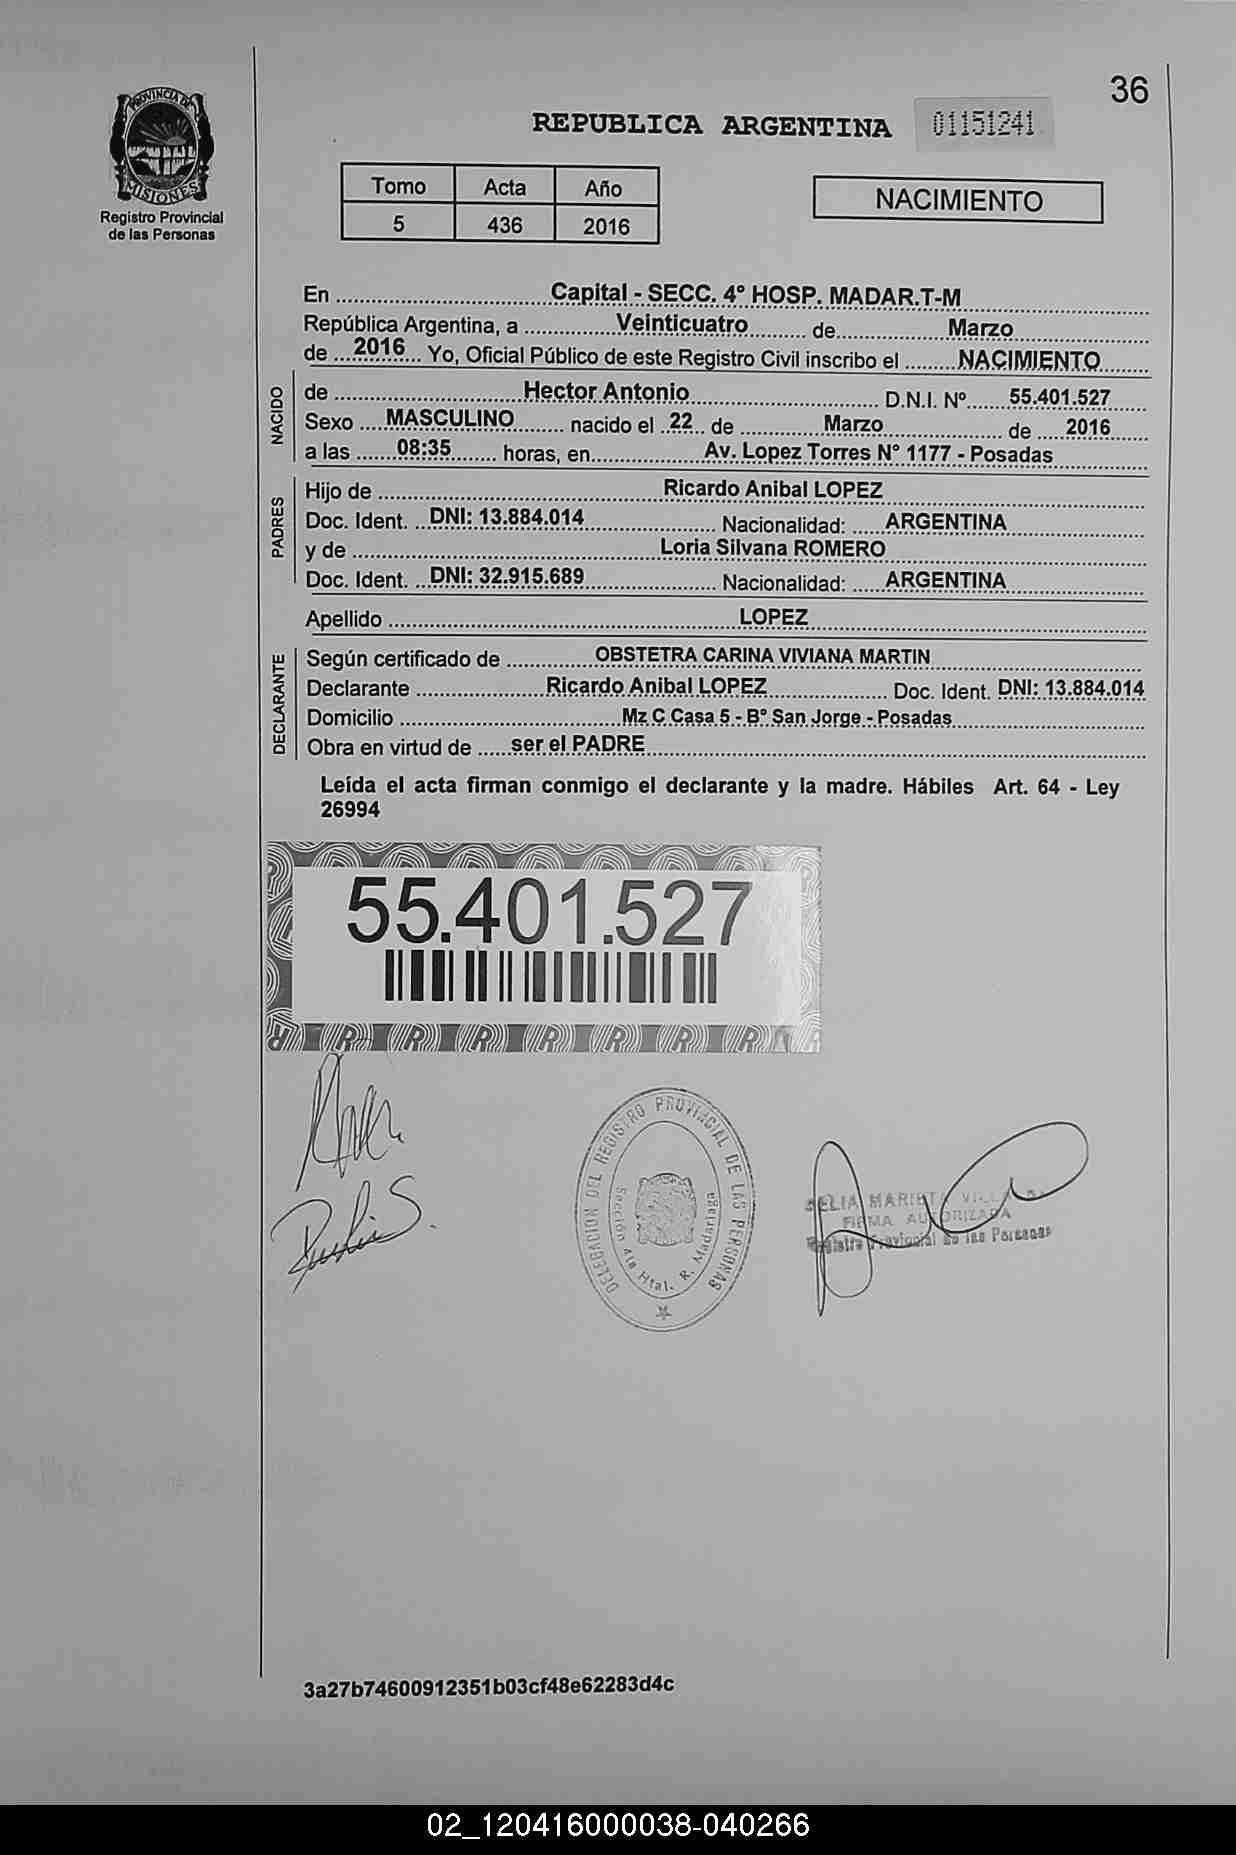 PROVINCIA DE
MISIONES
Registro Provincial
de las Personas
36
REPUBLICA ARGENTINA 01151241
Tomo Acta Año
5 436 2016
NACIMIENTO
En Capital - SECC. 4° HOSP. MADAR.T-M
República Argentina, a Veinticuatro de Marzo
de 2016 Yo, Oficial Público de este Registro Civil inscribo el NACIMIENTO
NACIDO
de Hector Antonio D.N.I. Nº 55.401.527
Sexo MASCULINO nacido el 22 de Marzo de 2016
a las 08:35 horas, en Av. Lopez Torres N° 1177 - Posadas
PADRES
Hijo de Ricardo Anibal LOPEZ
Doc. Ident. DNI: 13.884.014 Nacionalidad: ARGENTINA
y de Loria Silvana ROMERO
Doc. Ident. DNI: 32.915.689 Nacionalidad: ARGENTINA
Apellido LOPEZ
DECLARANTE
Según certificado de OBSTETRA CARINA VIVIANA MARTIN
Declarante Ricardo Anibal LOPEZ Doc. Ident. DNI: 13.884.014
Domicilio Mz C Casa 5 - B° San Jorge - Posadas
Obra en virtud de ser el PADRE
Leída el acta firman conmigo el declarante y la madre. Hábiles Art. 64 - Ley
26994
55.401.527
R R R R R R R
DELEGACION DEL REGISTRO PROVINCIAL DE LAS PERSONAS
Sección 4ta Htal. R. Madariaga
MARIETA
FIRMA AUTORIZADA
Registro Provincial de las Personas
3a27b74600912351b03cf48e62283d4c
02_120416000038-040266